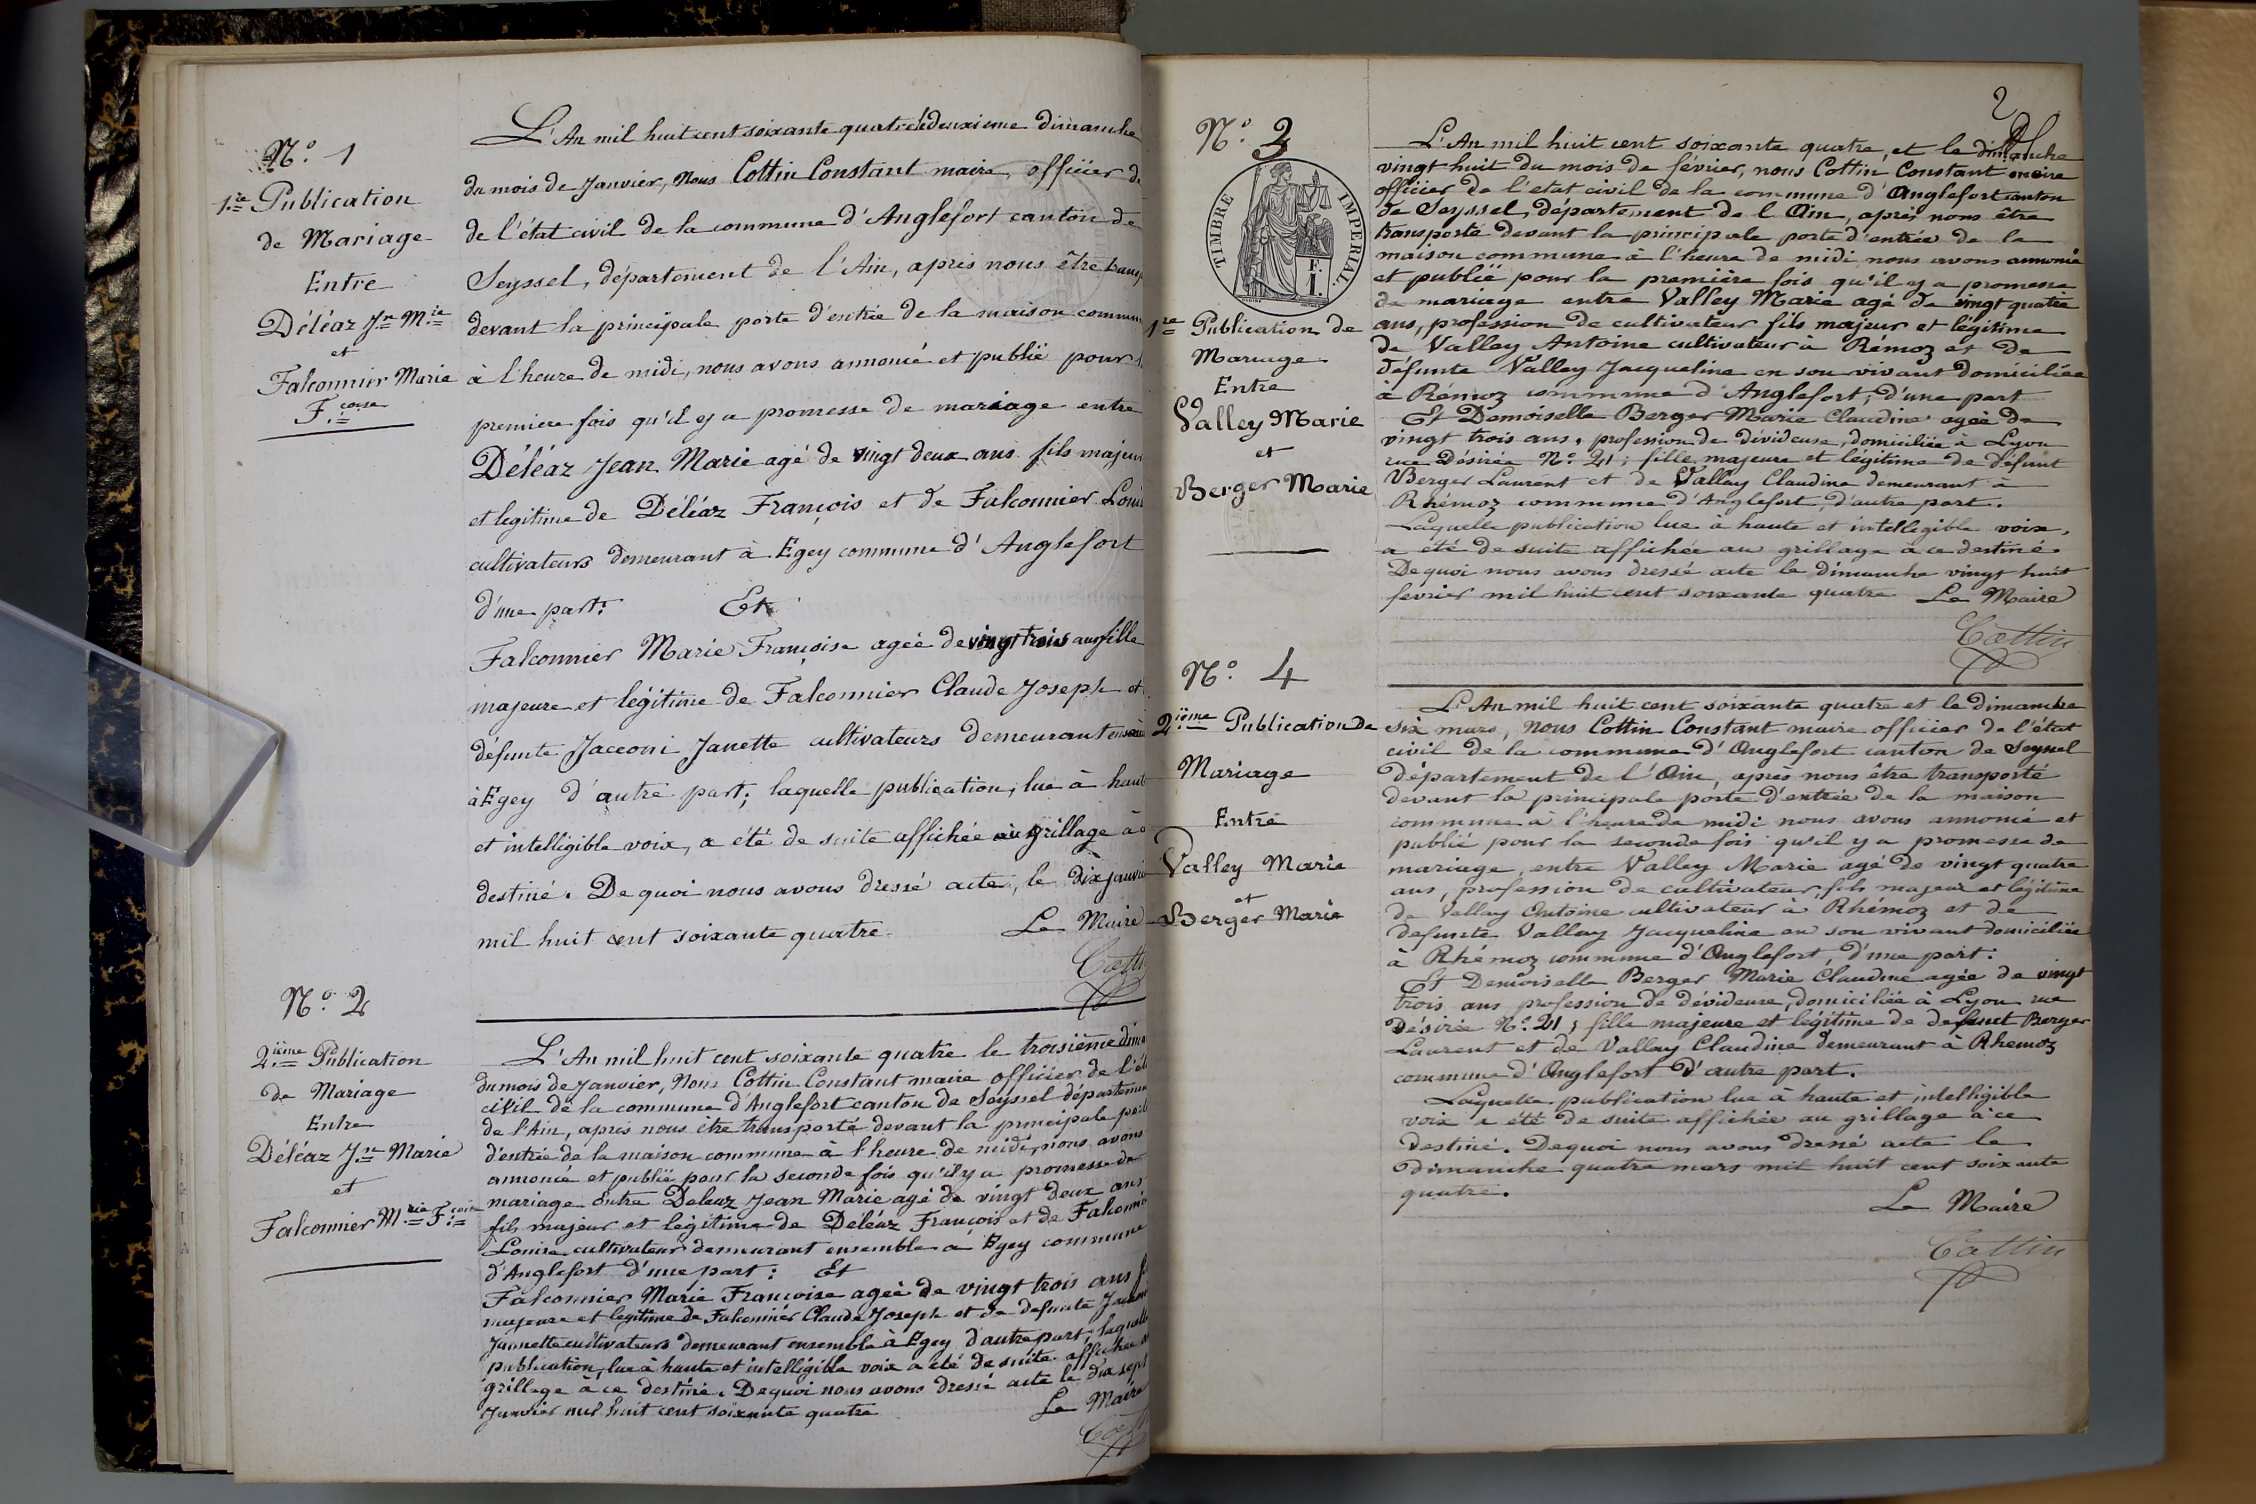 N.° 1
1.re Publication
de Mariage
Entre
Déléaz Jn M.ie
et
Falconnier Marie
F.çoise
L'An mil huit cent soixante quatre le deuxieme dimanche
du mois de Janvier, Nous Cottin Constant maire, officier de
de l'état civil de la commune d'Anglefort canton de
Seyssel, département de l'Ain, après nous être transp
devant la principale porte d'entrée de la maison commun
à l'heure de midi, nous avons annoncé et publié pour
premiere fois qu'il y a promesse de mariage entre
Déléaz Jean Marie agé de vingt deux ans fils majeur
et legitime de Déléaz François et de Falconnier Loui
cultivateurs demeurant à Egey commune d'Anglefort
d'une part: Et
Falconnier Marie Françoise agée de vingt trois ans fille
majeure et légitime de Falconnier Claude Joseph et
défunte Jacconi Janette cultivateurs demeurant
à Egey d'autre part; laquelle publication, lue à haute
et intelligible voix, a été de suite affichée au grillage à
destiné. De quoi nous avons dressé acte, le dix janvier
mil huit cent soixante quatre. Le Maire
Cotti
N.° 2
2.ième Publication
de Mariage
Entre
Déléaz Jn Marie
et
Falconnier M.rie F.çoise
L'An mil huit cent soixante quatre le troisième dima
du mois de Janvier, Nous Cottin Constant maire officier de l'ét
civil de la commune d'Anglefort canton de Seyssel départeme
de l'Ain, après nous être transporté devant la principale porte
d'entrée de la maison commune à l'heure de midi, nous avons
annoncé et publié pour la seconde fois qu'il y a promesse de
mariage entre Deleaz Jean Marie agé de vingt deux ans
fils majeur et legitime de Déléaz François et de Falconni
Louise cultivateurs demeurant ensemble à Egey commune
d'Anglefort d'une part: Et
Falconnier Marie Francoise agée de vingt trois ans
majeure et legitime de Falconnier Claude Joseph et de defunte
Jannette cultivateurs demeurant ensemble à Egey d'autre part, laquelle
publication, lue à haute et intelligible voix a été de suite affichée
grillage à ce destiné. De quoi nous avons dressé acte le dix sept
Janvier mil huit cent soixante quatre Le Maire
2
N.° 3
TIMBRE IMPERIAL.
E.I.
1re Publication de
Mariage
Entre
Valley Marie
et
Berger Marie
L'An mil huit cent soixante quatre, et le dimanche
vingt huit du mois de février, nous Cottin Constant maire
officier de l'etat civil de la commune d'Anglefort canton
de Seyssel, département de l'Ain, après nous être
transporté devant la principale porte d'entrée de la
maison commune à l'heure de midi, nous avons annoncé
et publié pour la première fois qu'il y a promesse
de mariage entre Valley Marie agé de vingt quatre
ans, profession de cultivateur fils majeur et légitime
de Valley Antoine cultivateur à Rémoz et de
défunte Valley Jacqueline en son vivant domiciliée
à Rémoz commune d'Anglefort, d'une part
Et Demoiselle Berger Marie Claudine agée de
vingt trois ans, profession de dévideuse, domiciliée à Lyon
rue Désirée N.° 21; fille majeure et légitime de défunt
Berger Laurent et de Valley Claudine demeurant à
Rhémoz commune d'Anglefort, d'autre part.
Laquelle publication lue à haute et intelligible voix,
a été de suite affichée au grillage à ce destiné.
De quoi nous avons dressé acte le dimanche vingt huit
février mil huit cent soixante quatre Le Maire
Cottin
N.° 4
2.ième Publication de
Mariage
Entre
Valley Marie
et
Berger Marie
L'An mil huit cent soixante quatre et le dimanche
six mars, Nous Cottin Constant maire officier de l'état
civil de la commune d'Anglefort canton de Seyssel
département de l'Ain, après nous être transporté
devant la principale porte d'entrée de la maison
commune à l'heure de midi nous avons annoncé et
publié pour la seconde fois qu'il y a promesse de
mariage, entre Valley Marie agé de vingt quatre
ans, profession de cultivateur, fils majeur et légitime
de Valley Antoine cultivateur à Rhémoz et de
defunte Valley Jacqueline en son vivant domiciliée
à Rhémoz commune d'Anglefort, d'une part:
Et Demoiselle Berger Marie Claudine agée de vingt
trois ans profession de dévideuse, domiciliée à Lyon rue
Désirée N.° 21; fille majeure et légitime de defunt Berger
Laurent et de Valley Claudine demeurant à Rhemoz
commune d'Anglefort d'autre part.
Laquelle publication lue à haute et intelligible
voix a été de suite affichée au grillage à ce
destiné. De quoi nous avons dressé acte le
dimanche quatre mars mil huit cent soixante
quatre.
Le Maire
Cottin